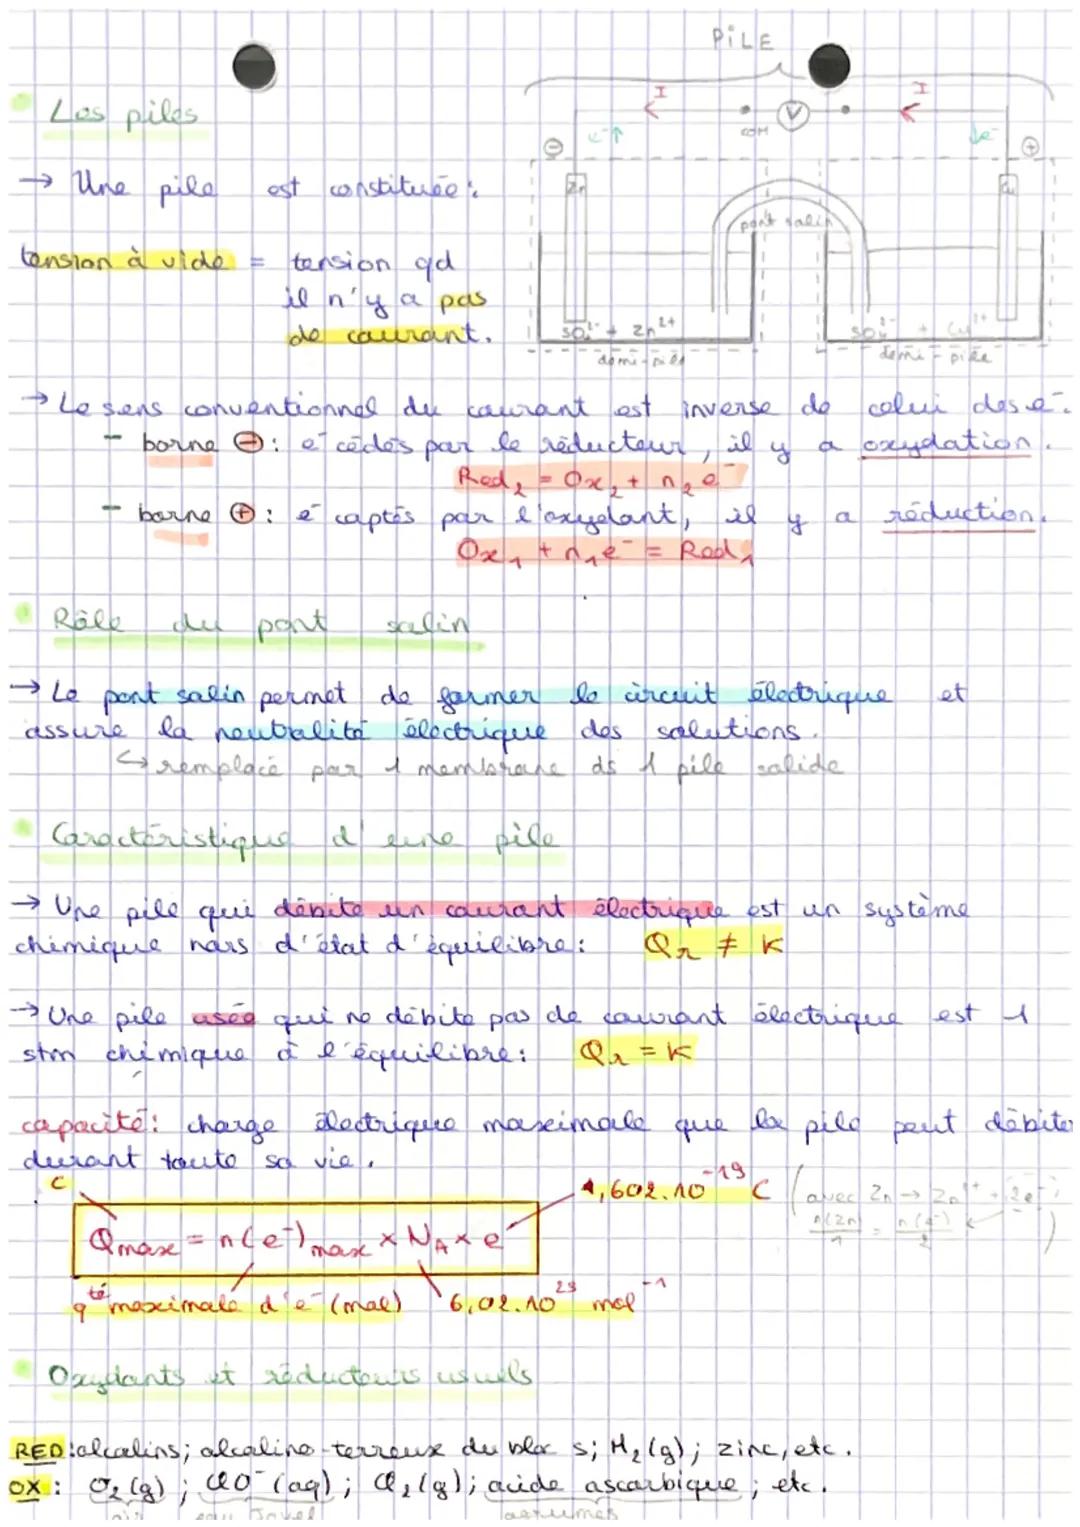 PILE
I
I
Les piles
COM
V
e⁻↑
↓e⁻
⊖
⊕
→ Une pile est constituée :
Zn
Cu
pont salin
tension à vide = tension qd
il n'y a pas
de courant.
SO₄²⁻ + Zn²⁺
SO₄²⁻ + Cu²⁺
demi-pile
demi-pile
→ Le sens conventionnel du courant est inverse de celui des e⁻.
- borne ⊖ : e⁻ cédés par le réducteur, il y a oxydation.
Red₂ = Ox₂ + n₂ e⁻
- borne ⊕ : e⁻ captés par l'oxydant, il y a réduction.
Ox₁ + n₁e⁻ = Red₁
Rôle du pont salin
→ Le pont salin permet de fermer le circuit électrique et
assure la neutralité électrique des solutions.
↳ remplacé par 1 membrane ds 1 pile solide
Caractéristique d'une pile
→ Une pile qui débite un courant électrique est un système
chimique hors d'état d'équilibre : Qr ≠ K
→ Une pile usée qui ne débite pas de courant électrique est 1
stm chimique à l'équilibre : Qr = K
capacité : charge électrique maximale que la pile peut débiter
durant toute sa vie.
C
1,602.10⁻¹⁹ C
(avec Zn → Zn²⁺ + 2e⁻
n(Zn)/1 = n(e⁻)/2)
Qmax = n(e⁻)max × NA × e
qté maximale d'e⁻ (mol)
6,02.10²³ mol⁻¹
Oxydants et réducteurs usuels
RED : alcalins; alcalino-terreux du bloc s; H₂(g); zinc, etc.
OX : O₂(g) ; ClO⁻(aq) ; Cl₂(g) ; acide ascorbique ; etc.
air
eau Javel
agrumes